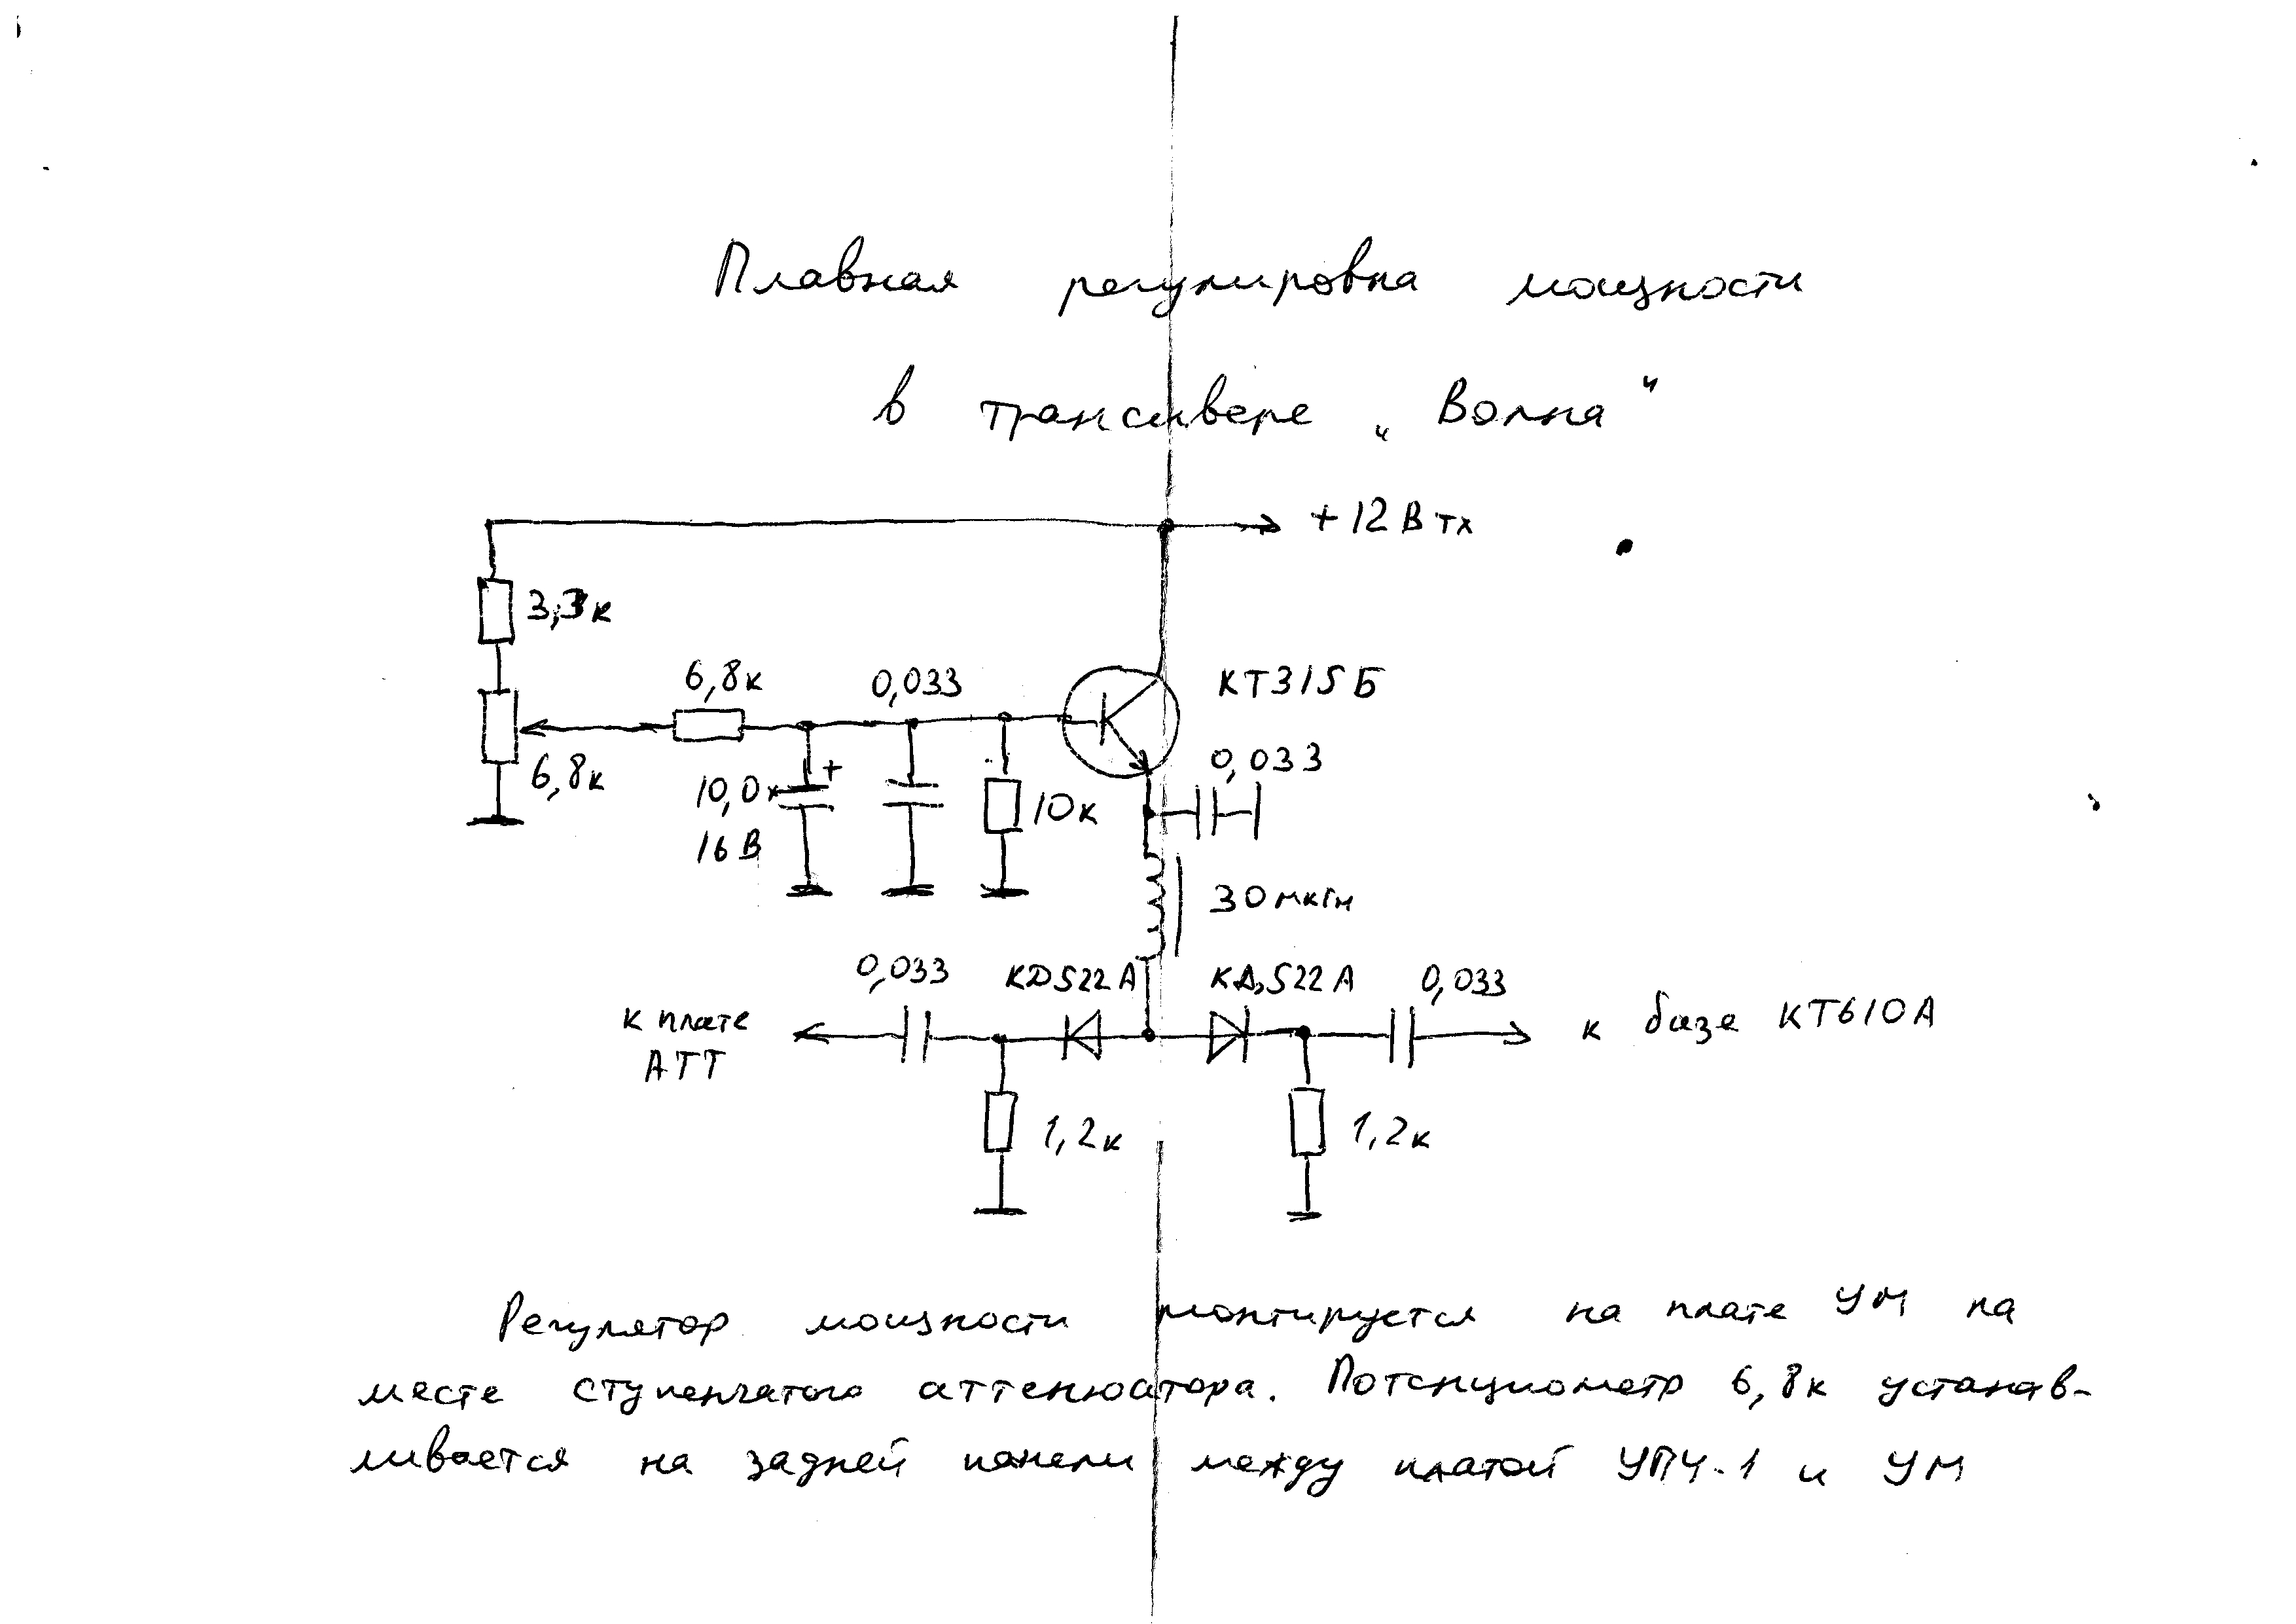 Плавная регулировка мощности
в трансивере „Волна“
+12В тх
3,3к
6,8к
0,033
КТ315Б
6,8к
10,0х
16В
+
10к
0,033
30мкГн
0,033
КД522А
КД522А
0,033
к плате
АТТ
к базе КТ610А
1,2к
1,2к
Регулятор мощности монтируется на плате УМ на
месте ступенчатого аттенюатора. Потенциометр 6,8к устанав-
ливается на задней панели между платой УПЧ-1 и УМ